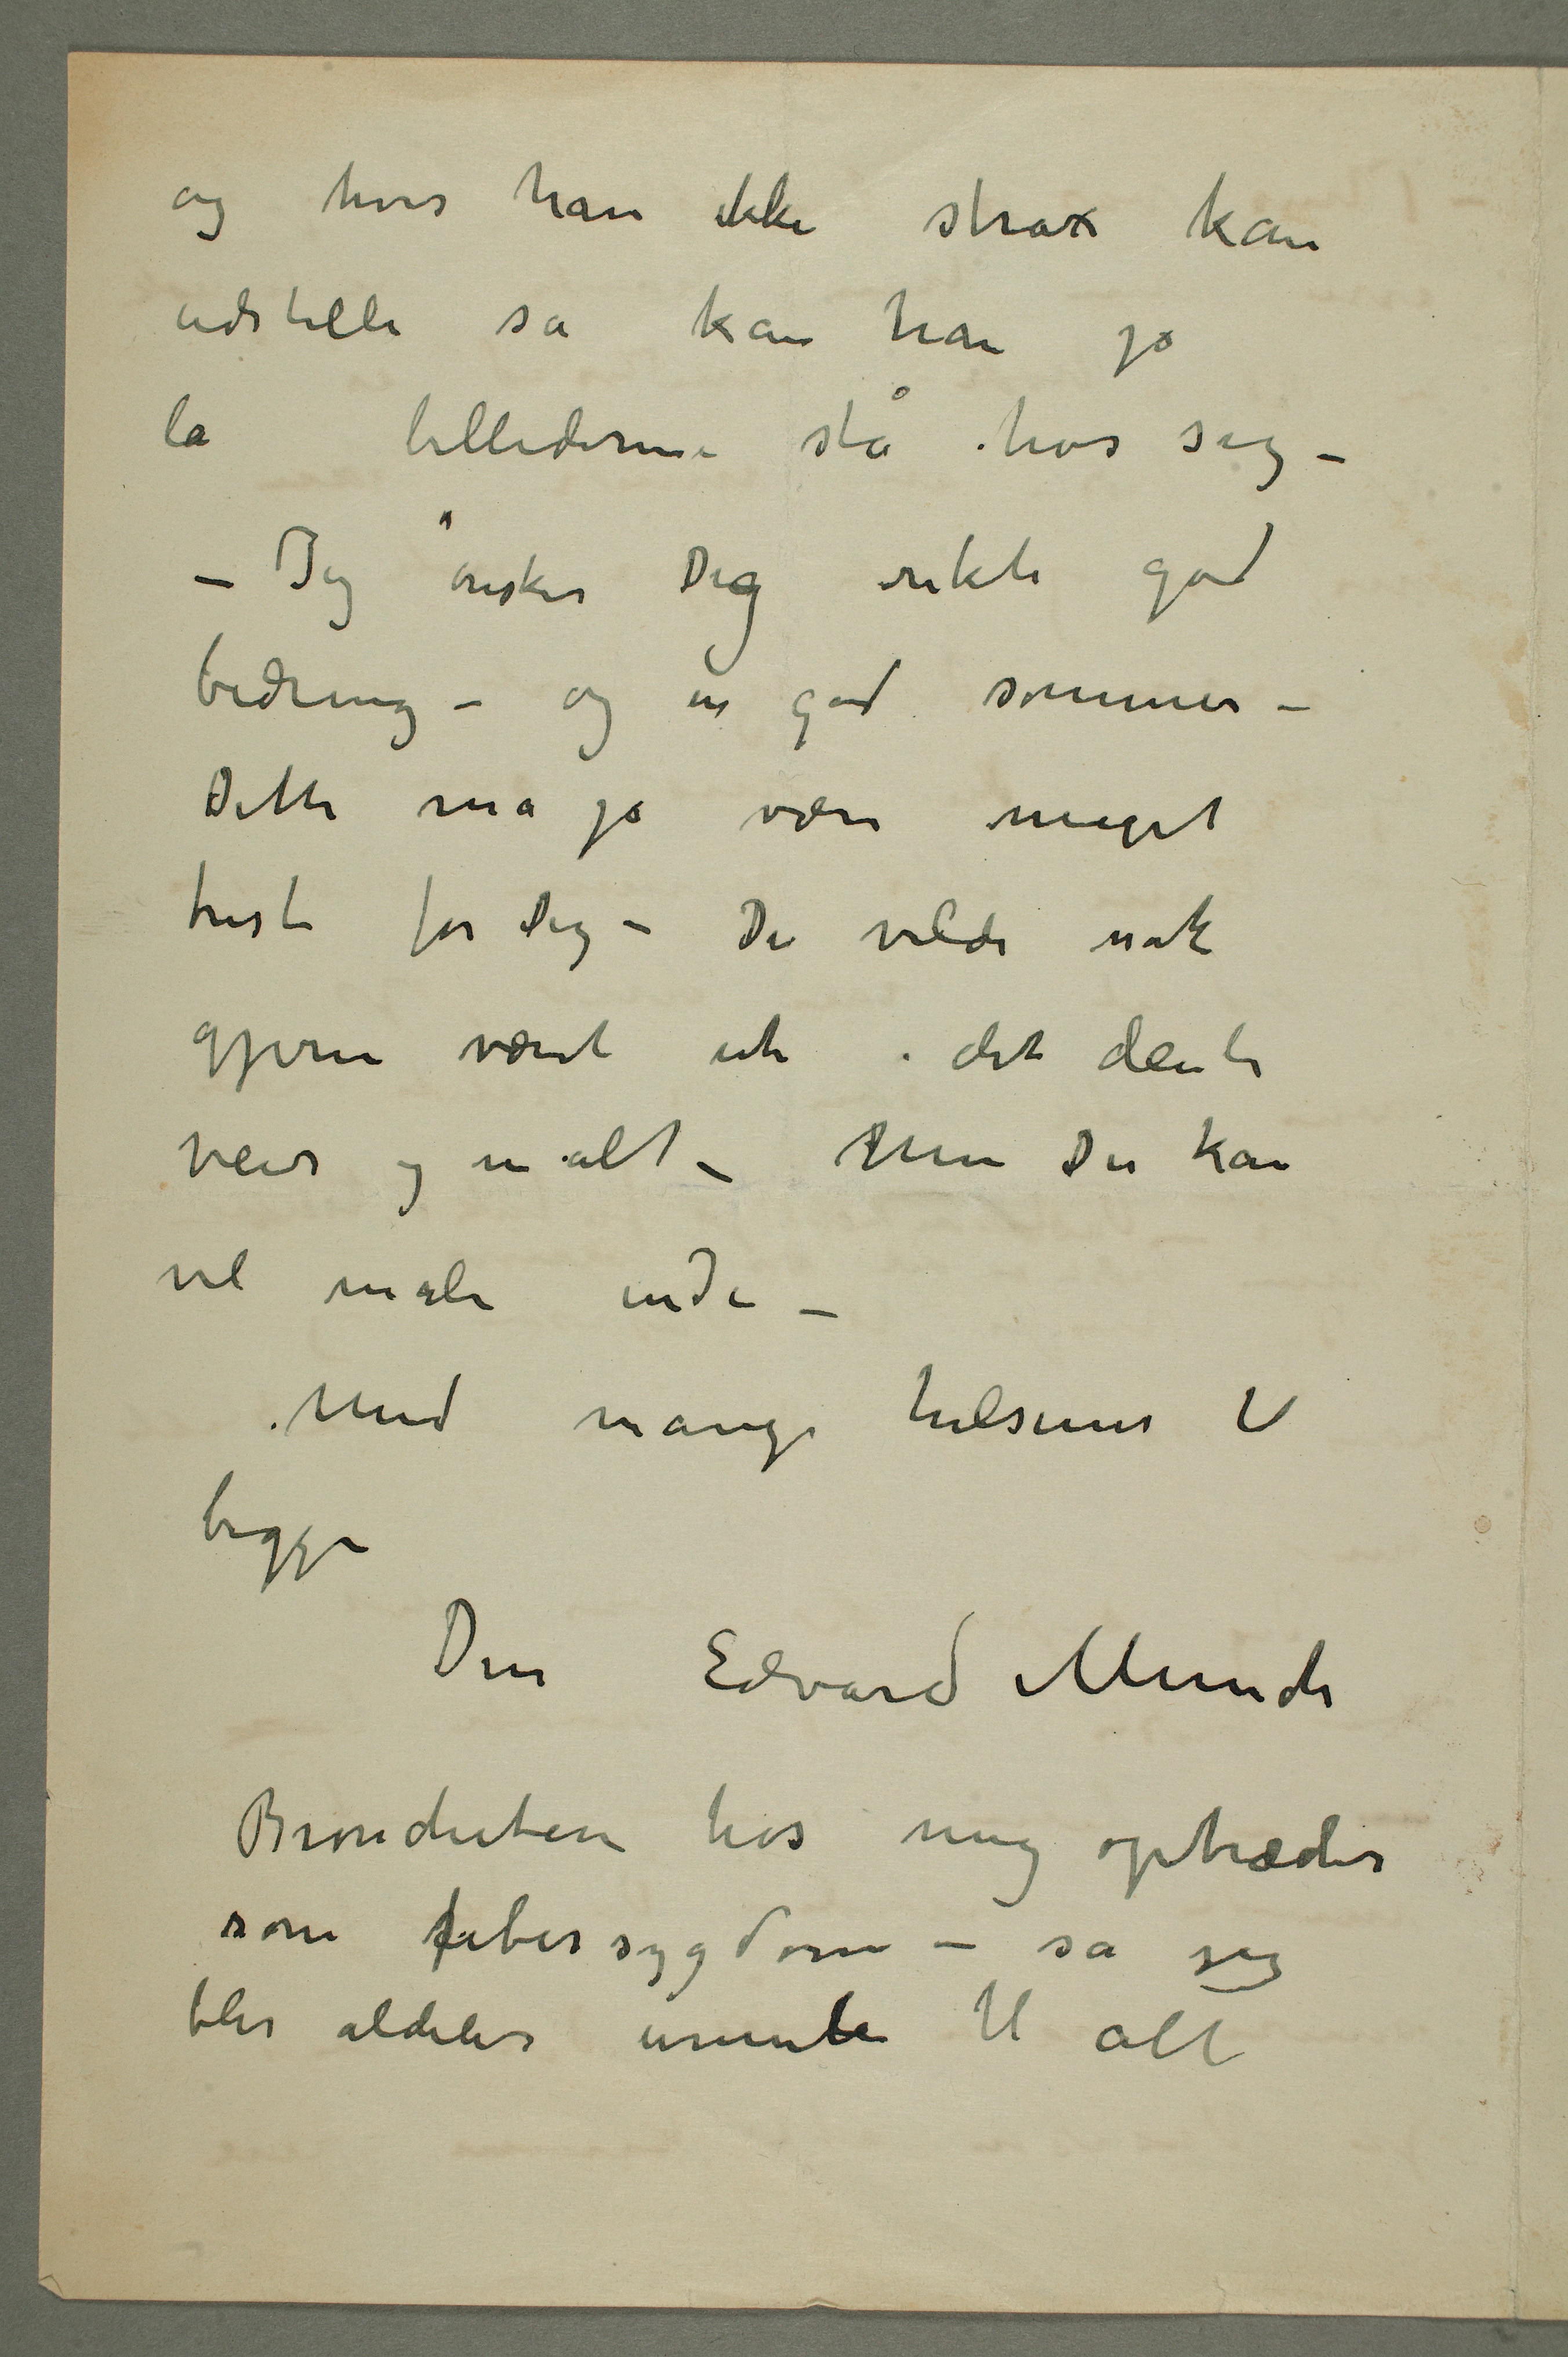 og hvis han ikke strax kan
udstille så kan han jo
la billederne stå hos sig –
– Jeg ønsker Dig rikti god
bedring – og en god sommer –
Dette må jo være meget
trist for Dig – Du vilde nok
gjerne været ute i det deili
veir og malt – Men Du kan
vel male inde –
Med mange hilsener til
begge
Din Edvard Munch
Bronchiten hos mig optræder
som febersygdom – så jeg
blir aldeles umuli til alt